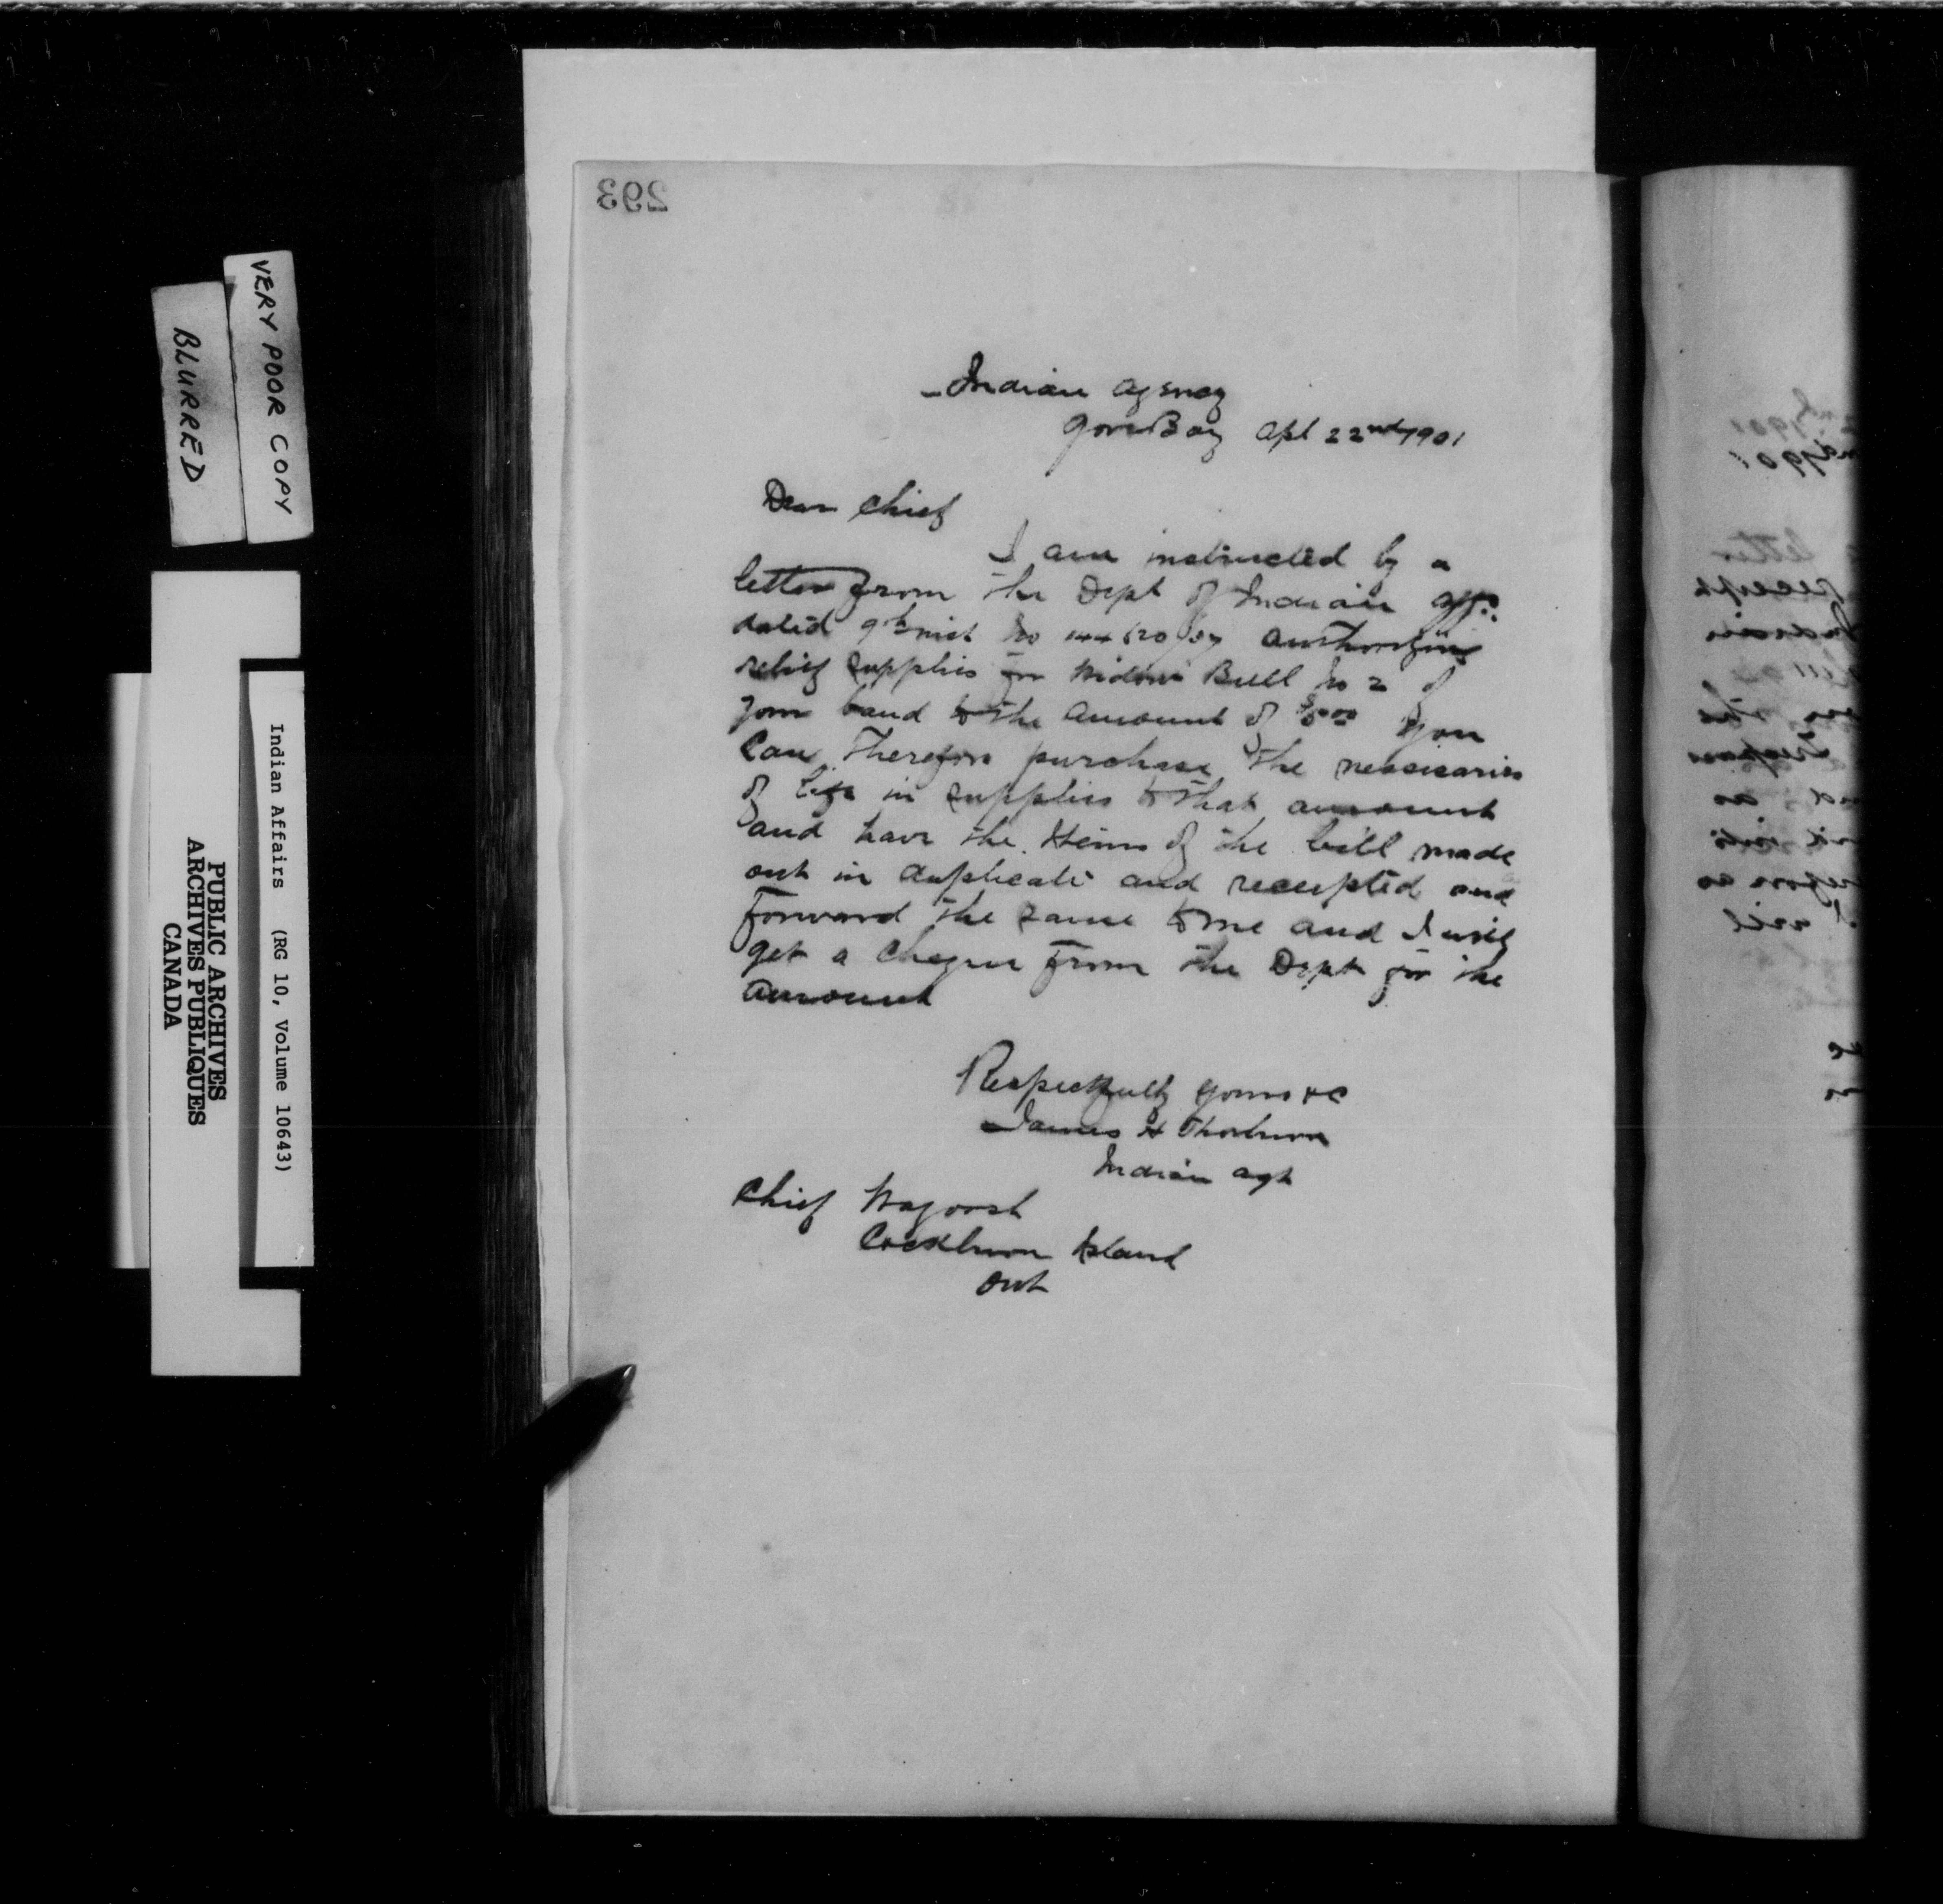 293
Indian Agency
Gore Bay Apl 22nd 1901
Dear Chief
I am instructed by a
letter from the Dept of Indian Aff.
dated 9th inst No authorizing
relief supplies for Widow Bull No 2 of
your band to the amount of $5.00 you
Can Therefore purchase the nessicaries
of life in supplies to that amount
and have the items of the bill made
out in duplicate and receipted and
Forward the same to me and I will
get a Cheque From the Dept for the
amount
Respectfully yours &c
James H Thorburn
Indian Agt
Chief Wagoosh
Cockburn Island
Ont
VERY POOR COPY
BLURRED
Indian Affairs (RG 10, Volume 10643)
PUBLIC ARCHIVES
ARCHIVES PUBLIQUES
CANADA